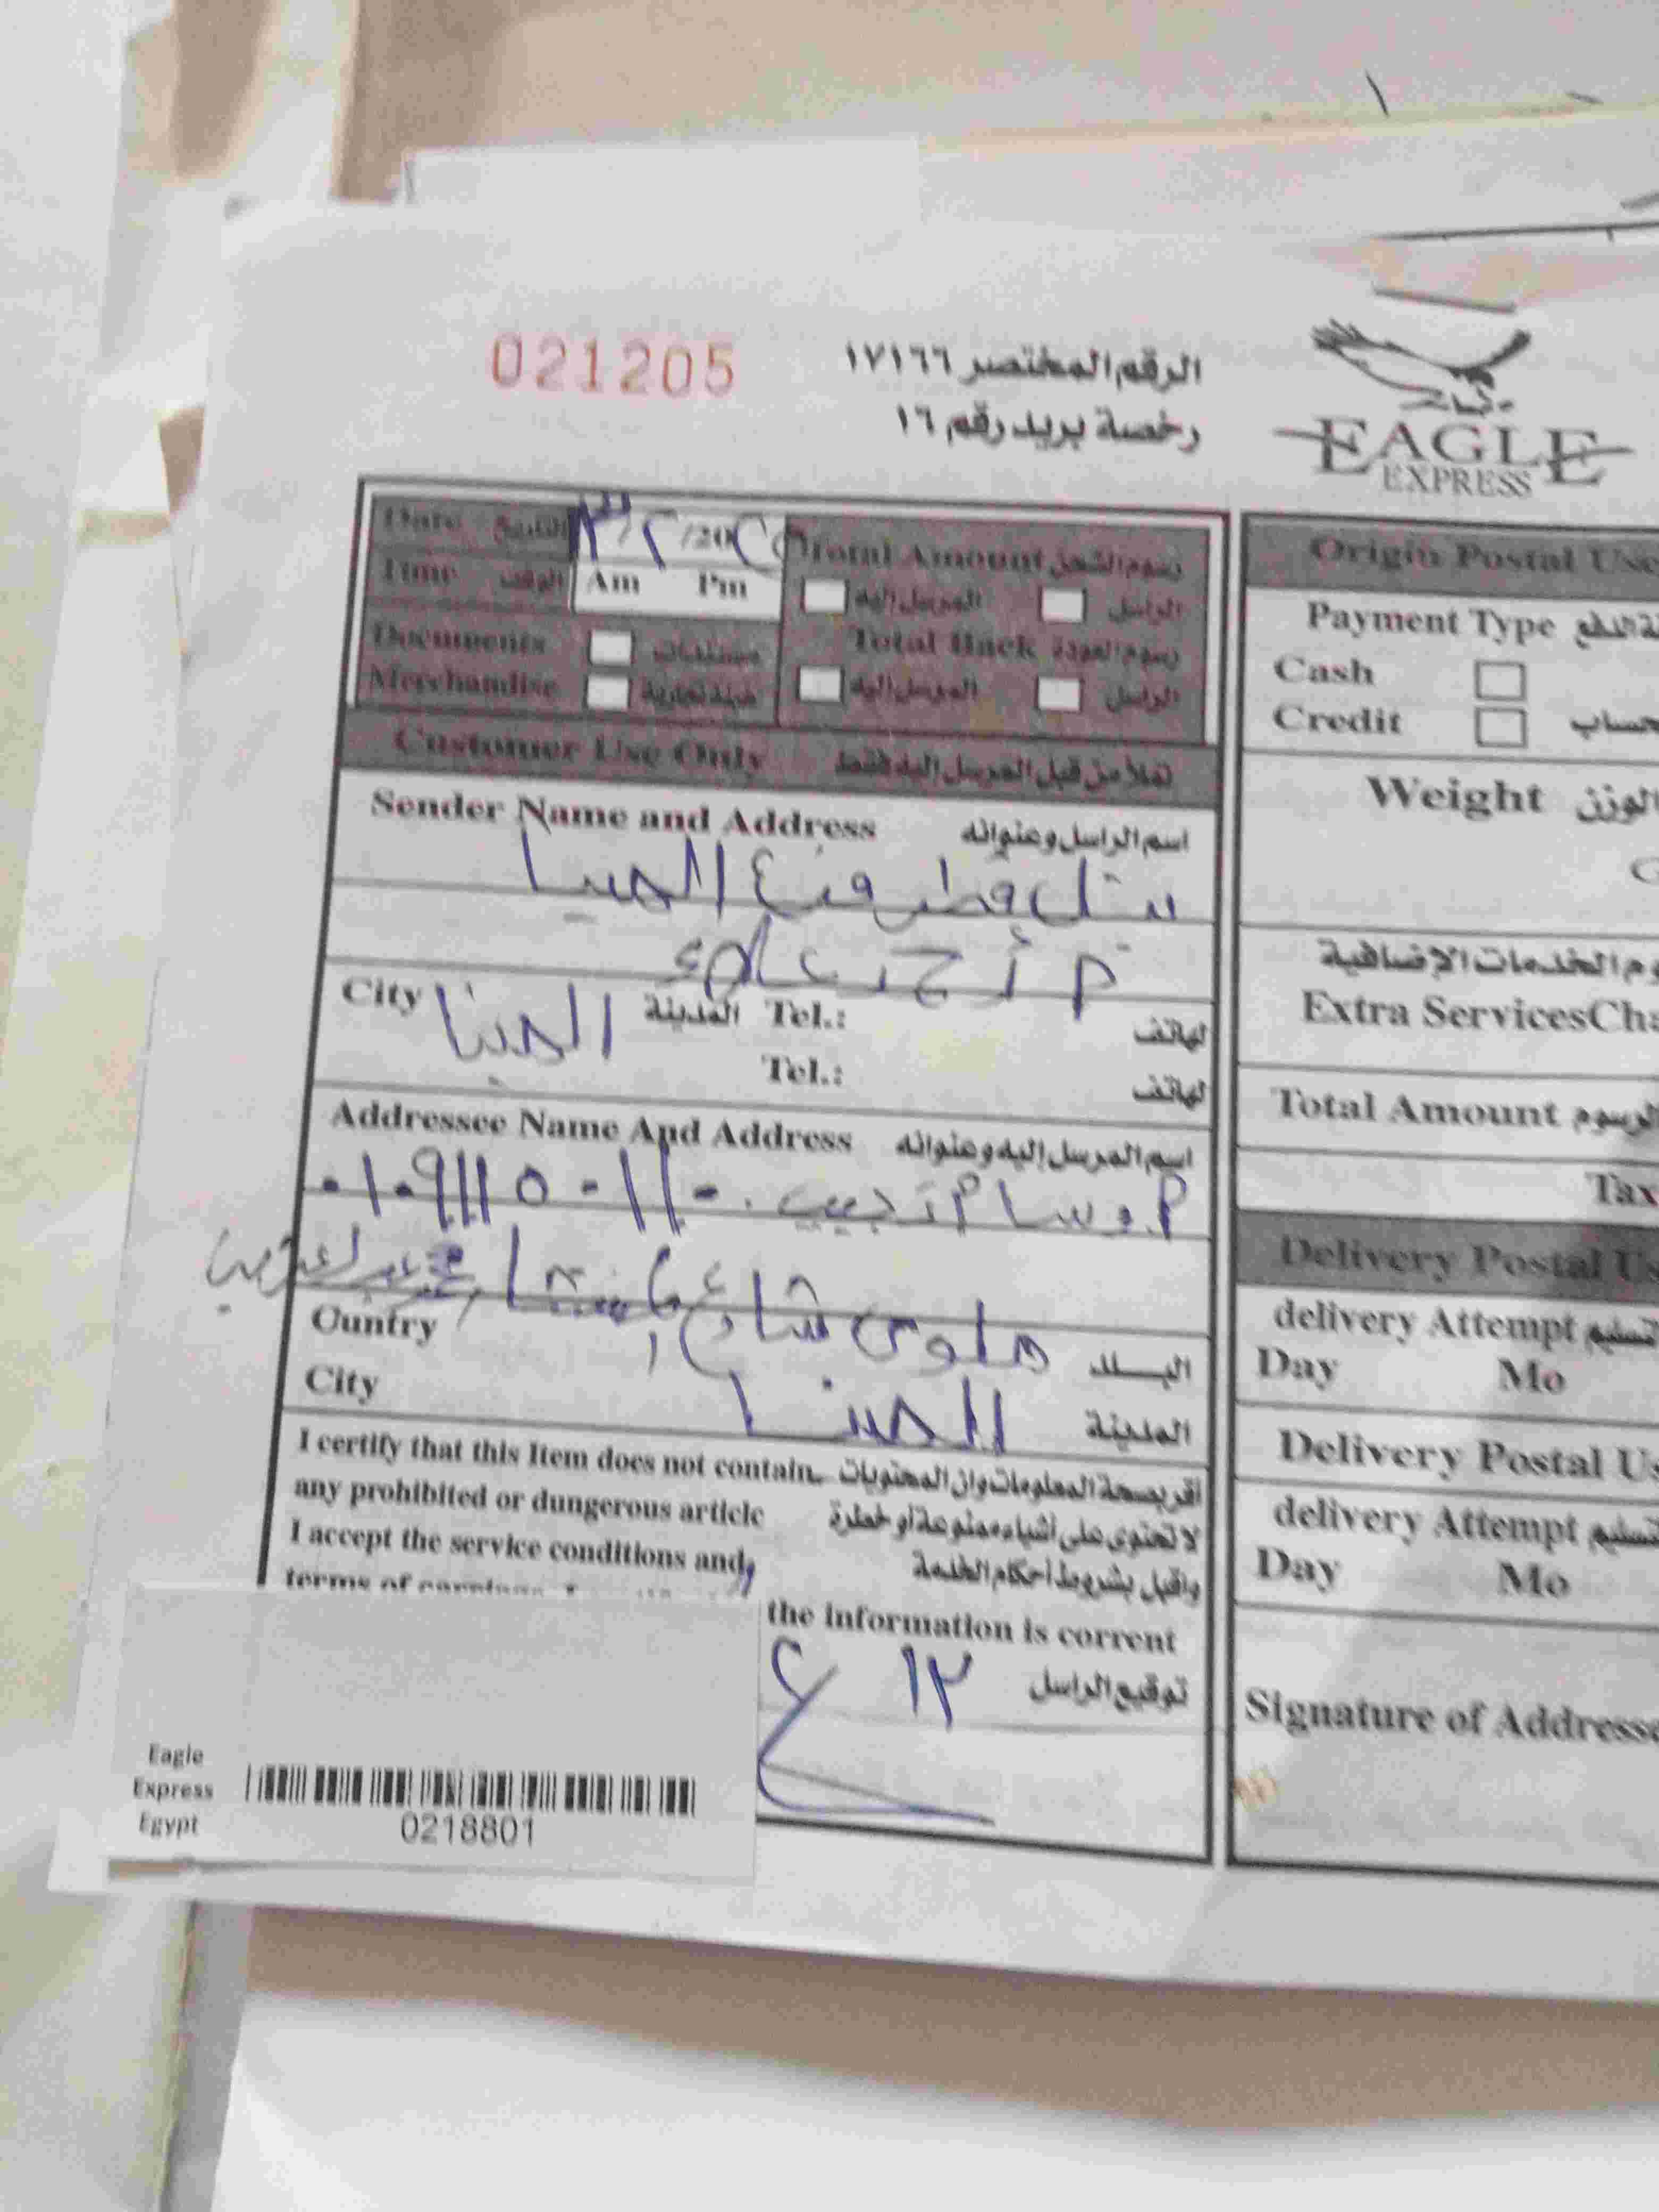 021205
الرقم المختصر ١٧١٦٦
رخصة بريد رقم ١٦
EAGLE
EXPRESS
Date التاريخ /20
Time الوقت Am Pm
Documents مستندات
Merchandise عينة تجارية
Total Amount رسوم الشحن
المرسل إليه الراسل
Total Back رسوم العودة
المرسل إليه الراسل
Customer Use Only تملأ من قبل المرسل إليه فقط
Sender Name and Address اسم الراسل وعنوانه
فرع المنيا
علاء
City المنيا المدينة Tel.: لهاتف
Tel.: لهاتف
Addressee Name And Address اسم المرسل إليه وعنوانه
م. وسام نجيب
ملوى شارع
Ountry البلد
City المنيا المدينة
I certify that this Item does not contain
any prohibited or dungerous article
I accept the service conditions and
terms of
أقر بصحة المعلومات وان المحتويات
لا تحتوى على أشياء ممنوعة أو خطرة
واقبل بشروط أحكام الخدمة
the information is corrent
توقيع الراسل ١٢
Eagle
Express
Egypt
0218801
Origin Postal Use
Payment Type
Cash
Credit حساب
Weight الوزن
وم الخدمات الإضافية
Extra ServicesCha
Total Amount الرسوم
Tax
Delivery Postal Us
delivery Attempt تسليم
Day Mo
Delivery Postal Us
delivery Attempt تسليم
Day Mo
Signature of Addresse